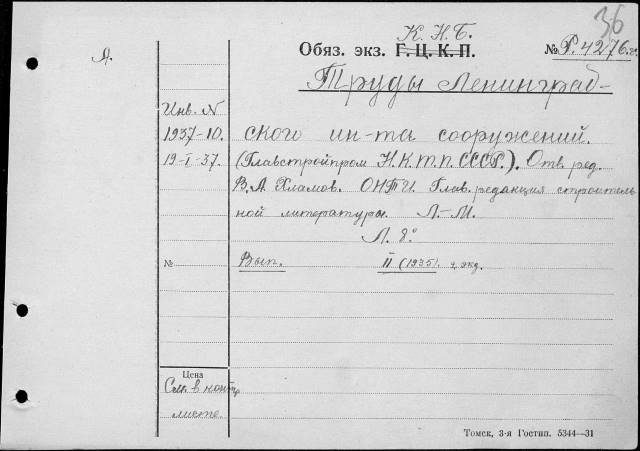 36
К. Н. Б.
Обяз. экз. Г. Ц. К. П.
№ Р. 4276
Л.
Труды Ленинград-
Инв. №
1937-10.
19-I-37.
ского ин-та сооружений.
(Главстройпром Н.К.Т.П. СССР.). Отв. ред.
В. А. Хламов. ОНТИ. Глав. редакция строитель
ной литературы. Л.-М.
Л. 8°
№
Вып. II (1935).
экз.
Цена
См. в контр
листе.
Томск, 3-я Гостип. 5344—31